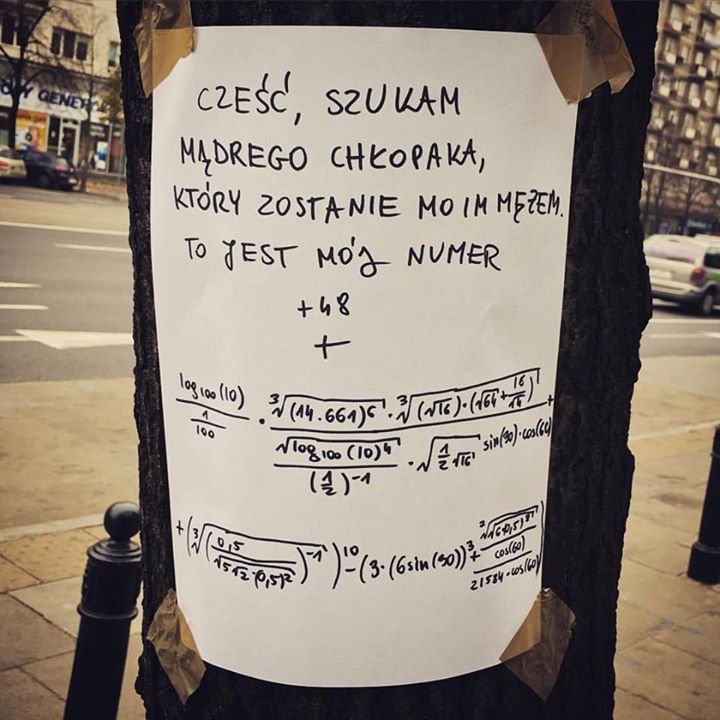 CZEŚĆ, SZUKAM
MĄDREGO CHŁOPAKA,
KTÓRY ZOSTANIE MOIM MĘŻEM.
TO JEST MÓJ NUMER
+48
+
log100(10) / (1/100) · (∛(14.661)⁶ · ∛((√16)·(√64+16/14))) / ((√log100(10)⁴ / (1/2)⁻¹) · √(1/2 √16) sin(90)·cos(60)) +
+(∛(0,5 / (√5√2·(0,5)²))⁻¹)¹⁰ - (3·(6sin(90))³ +
cos(60)
21584·cos(60)
GENER